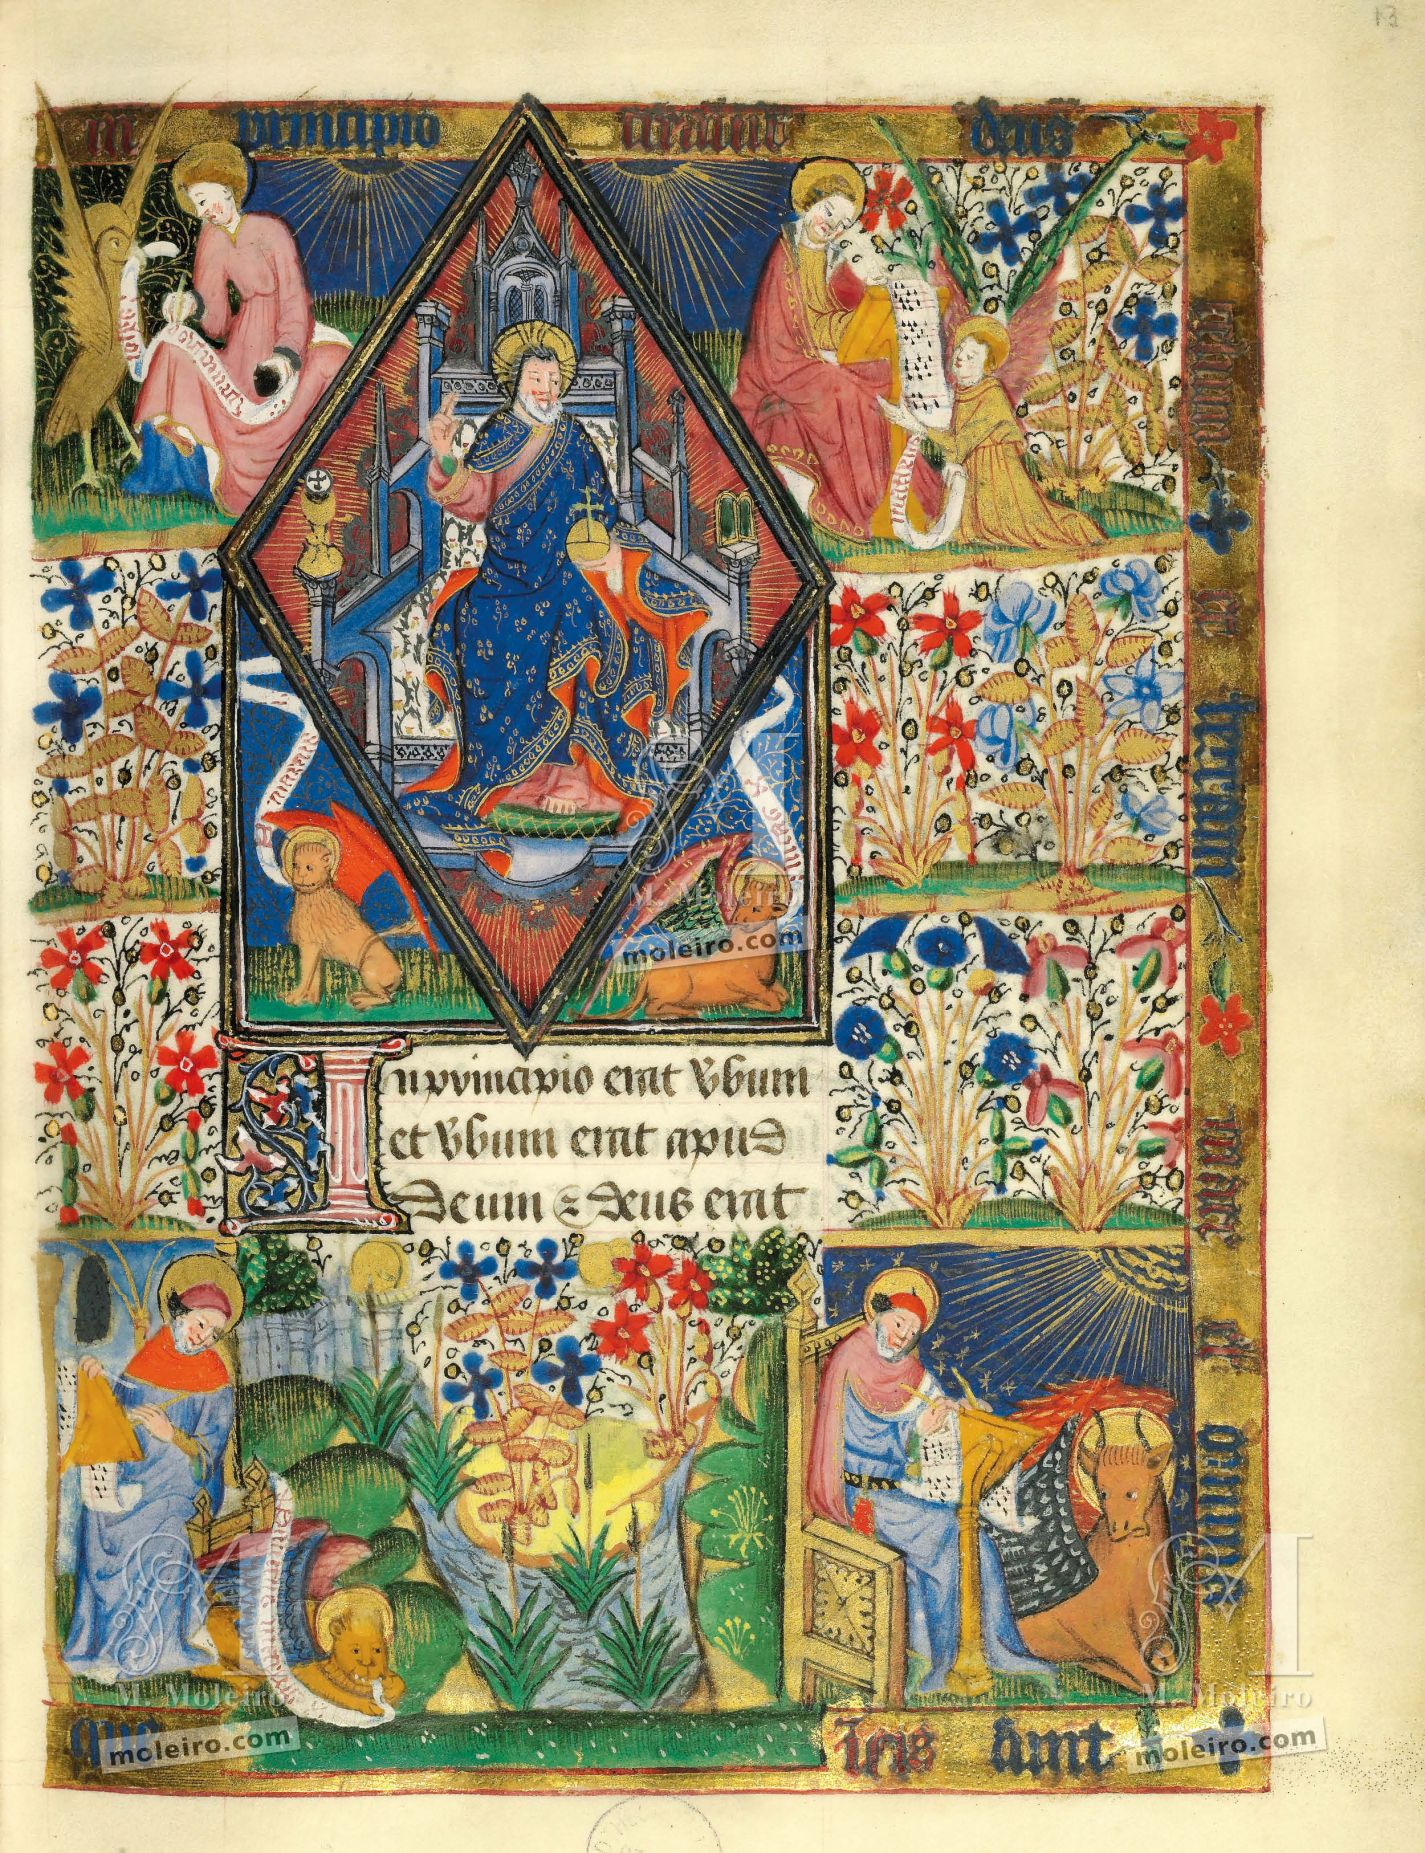 13
in principio creavit deus
celum et terram
mare et omnia
que
ieis sunt
matheus
marcus
In principio erat vbum
et vbum erat apud
deum & deus erat
M. Moleiro
moleiro.com
M. Moleiro
moleiro.com
M. Moleiro
moleiro.com